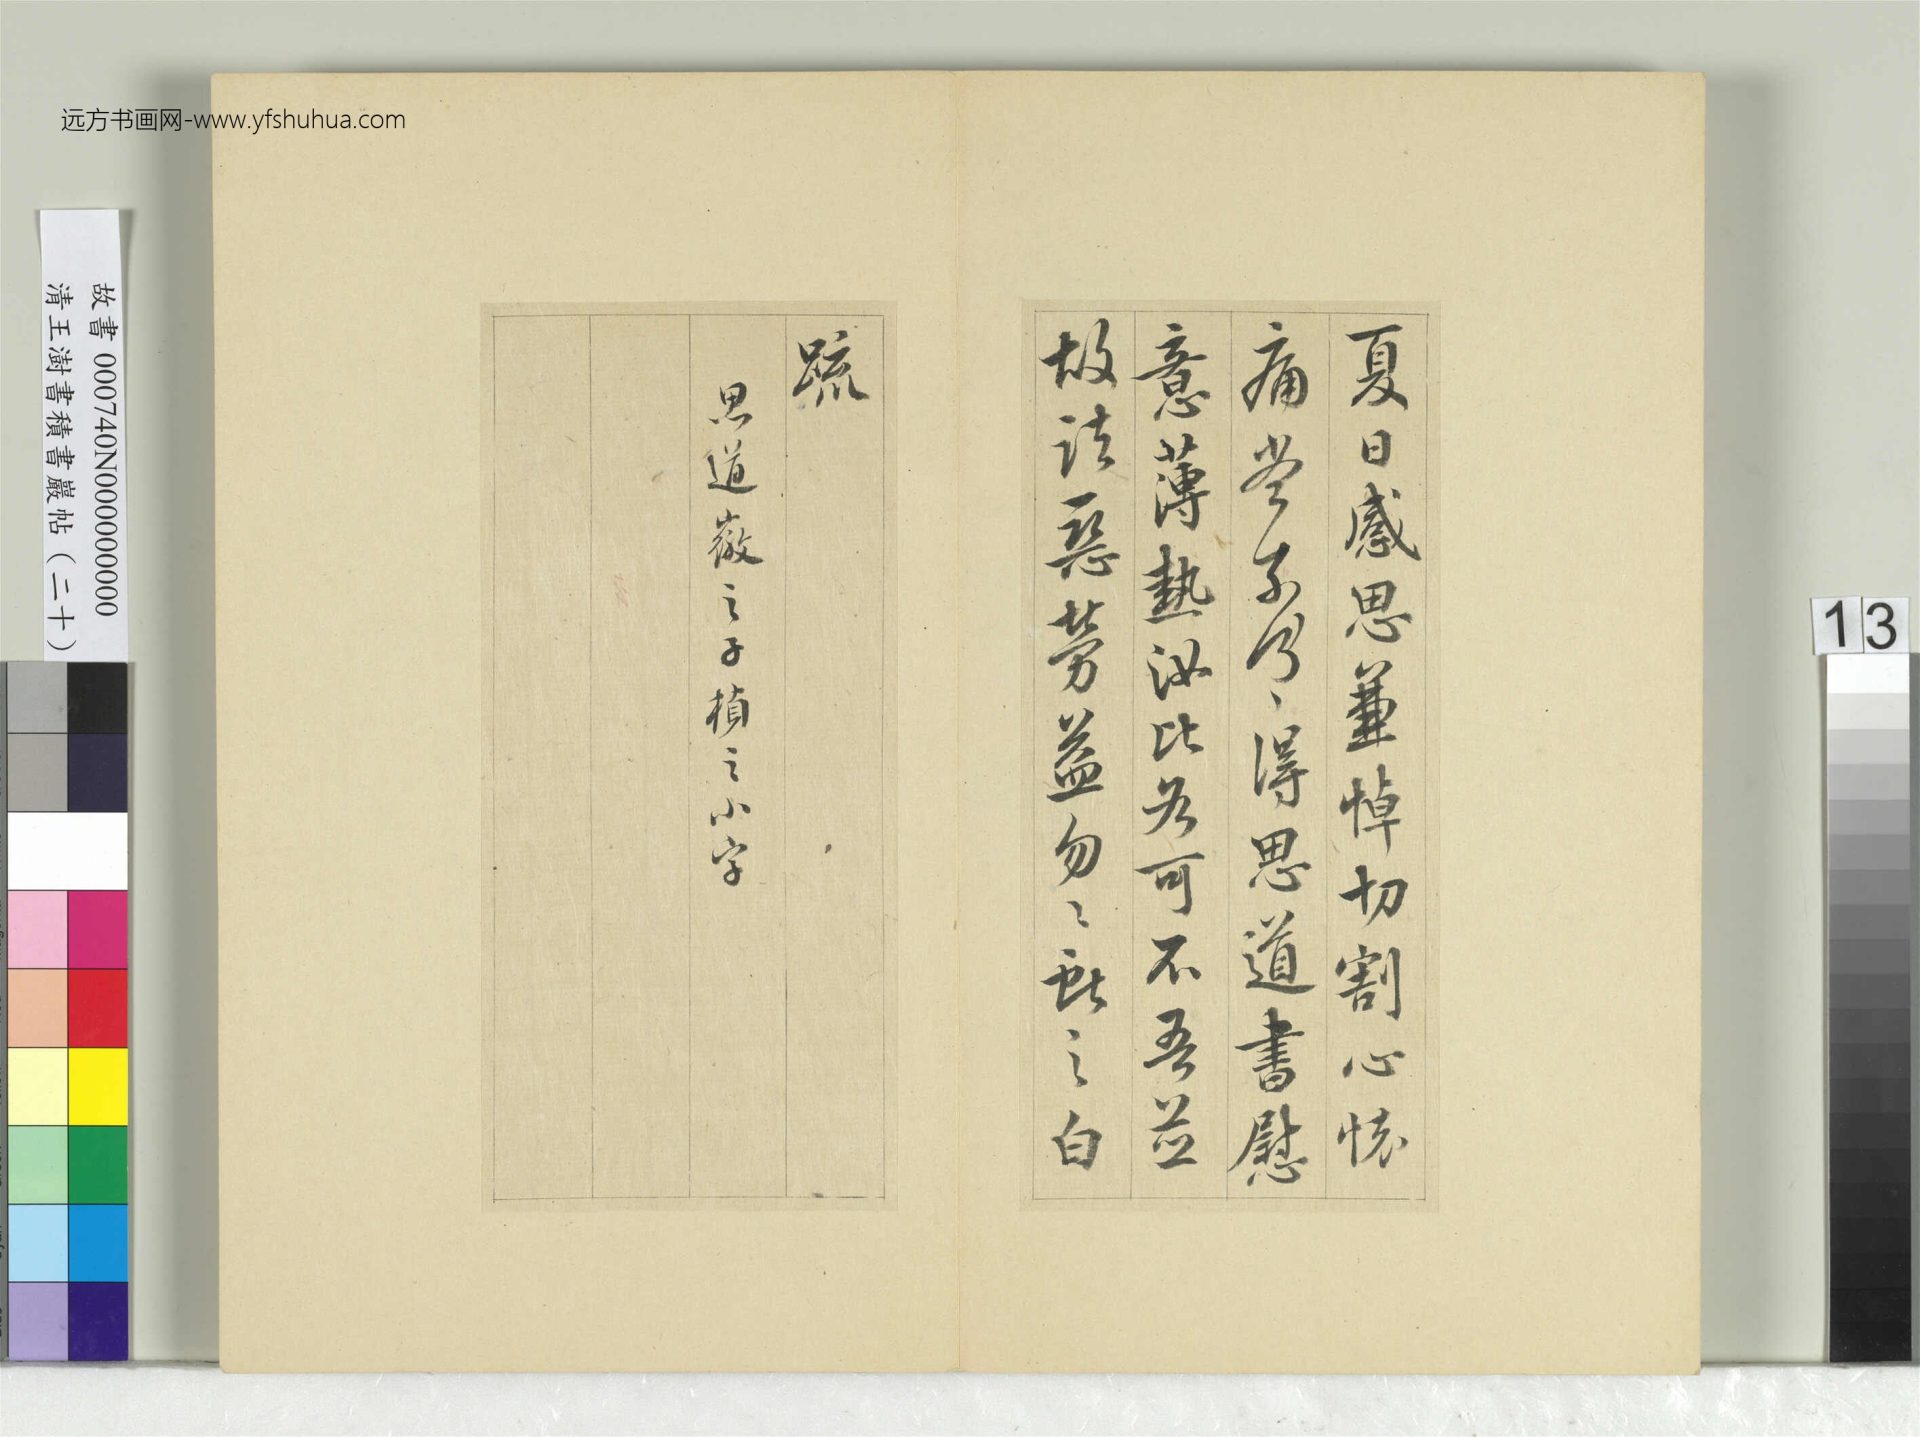 远方书画网-www.yfshuhua.com
夏日感思兼悼切割心懷
痛當奈何〻得思道書慰
意薄熱汝比各可不吾並
故諸惡勞益勿〻獻之白
疏
思道徽之子楨之小字
故書 000740N000000000
清王澍書積書巖帖（二十）
13